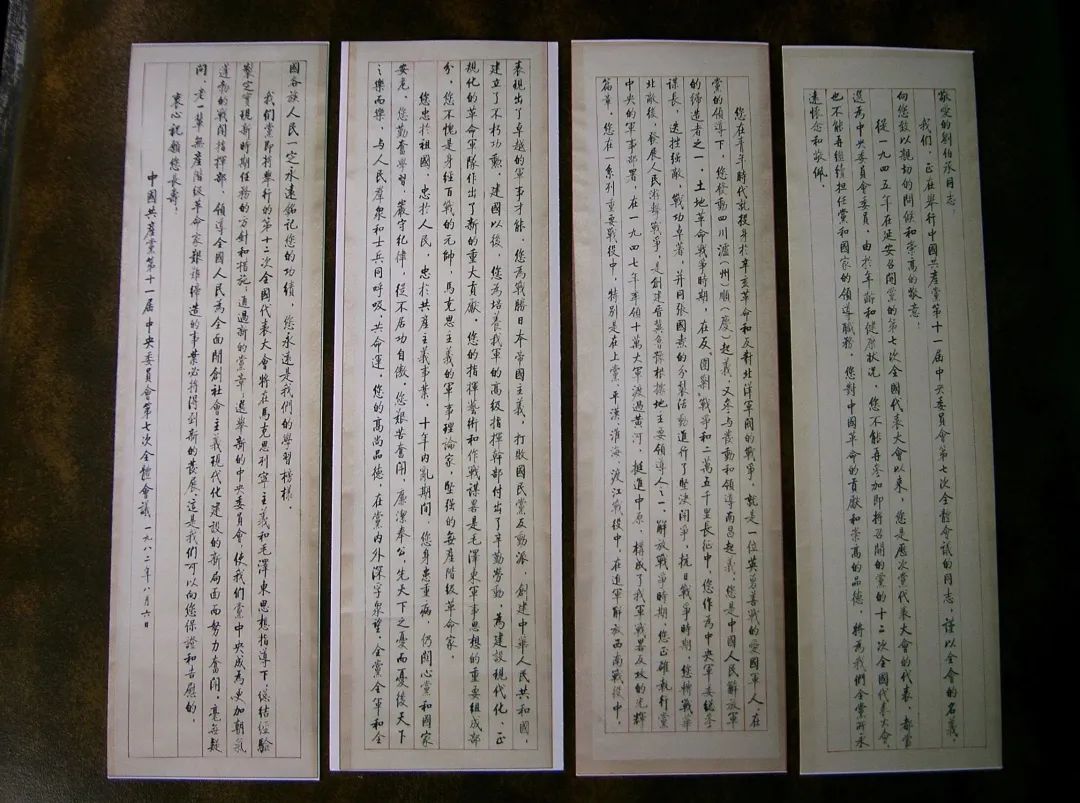 敬愛的劉伯承同志：
我们，正在举行中國共產黨第十一届中央委員會第七次全體會議的同志，謹以全會的名義，
向您致以親切的問候和崇高的敬意！
從一九四五年在延安召開黨的第七次全國代表大會以來，您是歷次黨代表大會的代表，都當
選為中央委員會委員，由於年齡和健康狀况，您不能再参加即將召開的黨的十二次全國代表大會，
也不能再繼續担任黨和國家的領導職務，您對中國革命的貢獻和崇高的品德，將為我們全黨所永
遠懷念和敬佩。
您在青年時代就投身於辛亥革命和反對北洋軍閥的戰爭，就是一位英勇善戰的愛國軍人，在
黨的領導下，您發動四川瀘（州）順（慶）起義，又來与發動和領導南昌起義；您是中國人民解放軍
的締造者之一，土地革命戰爭時期，在反“圍剿”戰爭和二萬五千里長征中，您作為中央軍委總参
谋長，选挫强敵，戰功卓著，并同張國燾的分裂活動進行了堅决鬥爭，抗日戰爭時期，您轉戰華
北敵後，發展人民游擊戰爭，是創建晋冀魯豫根據地主要領導人之一，解放戰爭時期，您正確執行黨
中央的軍事部署，在一九四七年率領十萬大軍渡過黄河，挺進中原，構成了我軍戰畧反攻的光輝
篇章，您在一系列重要戰役中，特别是在上黨、平漢、淮海、渡江戰役中，在進軍解放西南戰役中，
表現出了卓越的軍事才能，您為戰勝日本帝國主義，打敗國民黨反動派，創建中華人民共和國，
建立了不朽功勲，建國以後，您為培養我軍的高级指揮幹部付出了辛勤勞動，為建設現代化、正
規化的革命軍隊作出了新的重大貢獻，您的指揮藝術和作戰謀畧是毛澤東軍事思想的重要組成部
分，您不愧是身经百戰的元帥，馬克思主義的軍事理論家，堅强的無產階级革命家。
您忠於祖國，忠於人民，忠於共産主義事業，十年内亂期間，您身患重病，仍關心黨和國家
安危，您勤奮學習，嚴守紀律，從不居功自傲，您艱苦奮鬥，廉潔奉公，先天下之憂而憂後天下
之樂而樂，与人民群衆和士兵同呼吸、共命運，您的高尚品德，在黨内外深孚衆望，全黨全軍和全
國各族人民一定永遠銘记您的功績，您永遠是我們的學習榜樣。
我們黨即將舉行的第十二次全國代表大會將在馬克思列寧主義和毛澤東思想指導下，總结經驗
製定實現新時期任務的方針和措施，通過新的黨章，選舉新的中央委員會，使我們黨中央成為更加朝氣
蓬勃的戰鬥指揮部，領導全國人民為全面開創社會主義現代化建設的新局面而努力奮鬥，毫無疑
問，老一輩無産階级革命家艱難締造的事業必將得到新的發展，這是我們可以向您保證和告慰的，
衷心祝願您長壽！
中國共産黨第十一届中央委員會第七次全體會議　一九八二年八月六日